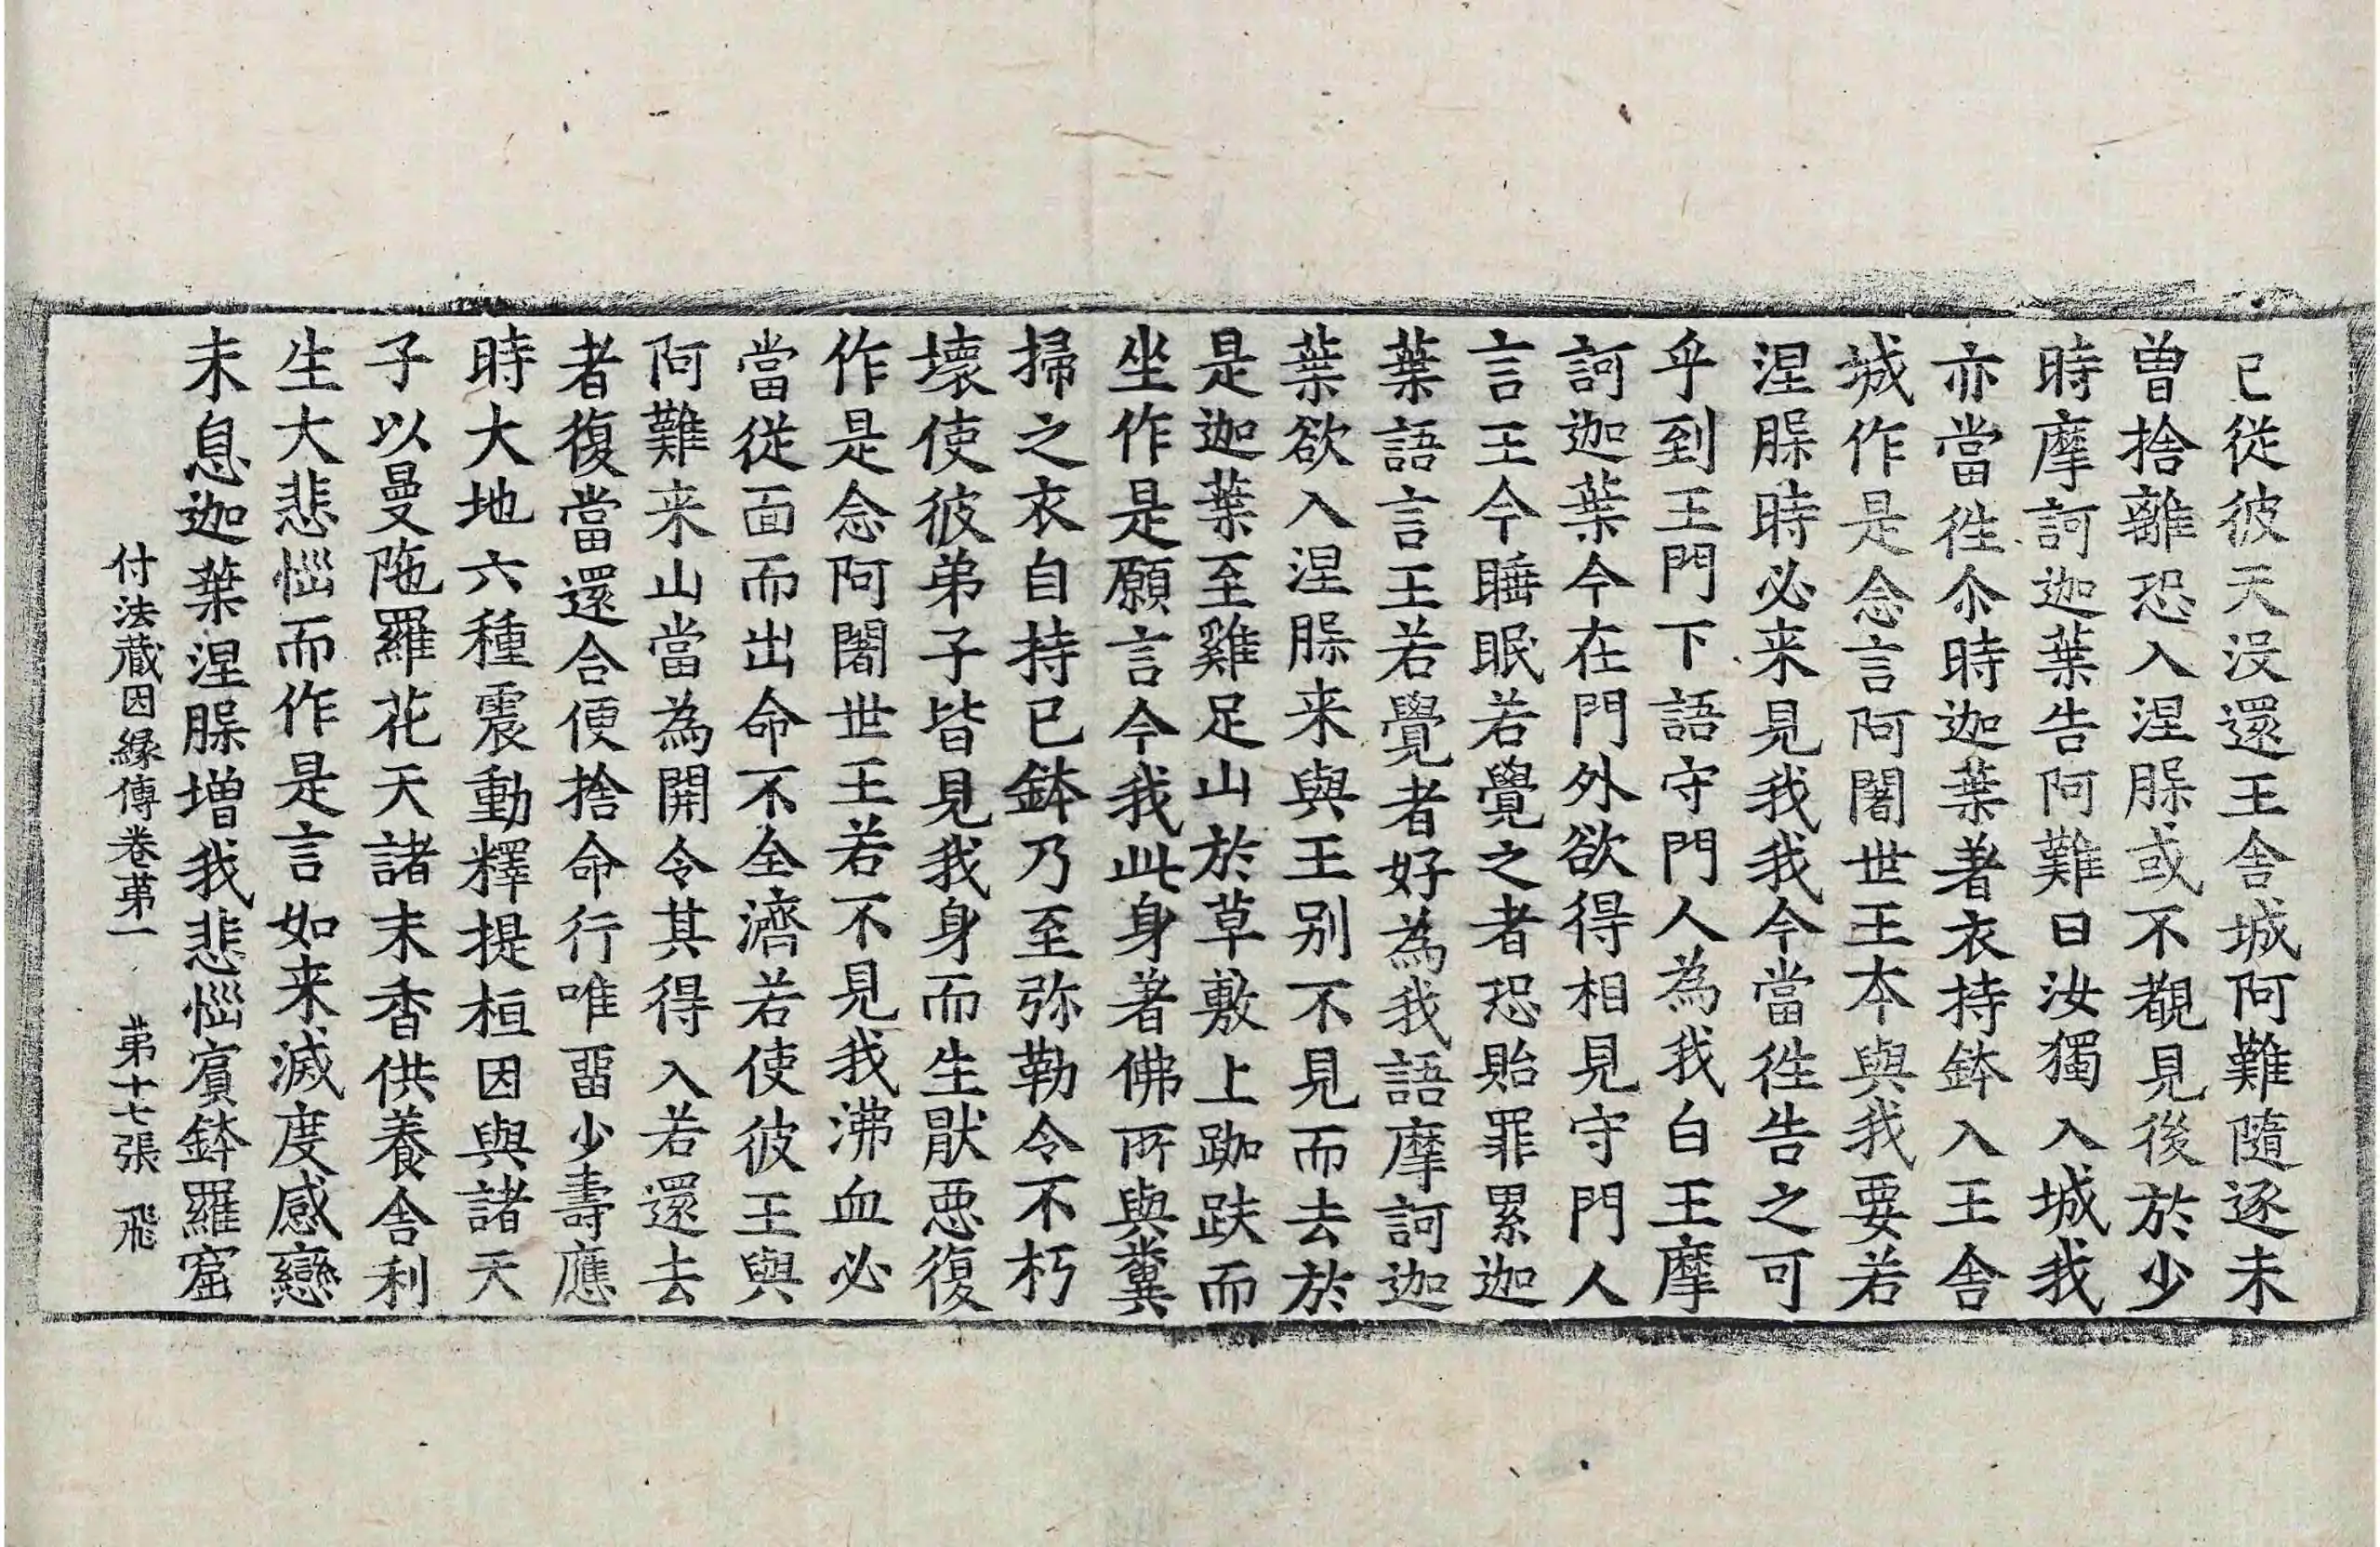 已從彼天没還王舍城阿難隨逐未
曾捨離恐入涅槃或不覩見後於少
時摩訶迦葉告阿難曰汝獨入城我
亦當徃尒時迦葉著衣持鉢入王舍
城作是念言阿闍世王本與我要若
涅槃時必来見我我今當徃告之可
乎到王門下語守門人為我白王摩
訶迦葉今在門外欲得相見守門人
言王今睡眠若覺之者恐貽罪累迦
葉語言王若覺者好為我語摩訶迦
葉欲入涅槃来與王别不見而去於
是迦葉至雞足山於草敷上跏趺而
坐作是願言今我此身著佛所與糞
掃之衣自持已鉢乃至弥勒令不朽
壞使彼弟子皆見我身而生猒惡復
作是念阿闍世王若不見我沸血必
當從面而出命不全濟若使彼王與
阿難来山當為開令其得入若還去
者復當還合便捨命行唯畱少壽應
時大地六種震動釋提桓因與諸天
子以曼陁羅花天諸末香供養舍利
生大悲惱而作是言如来滅度感戀
未息迦葉涅槃增我悲惱賔鉢羅窟
付法藏因縁傳卷苐一 苐十七張 飛